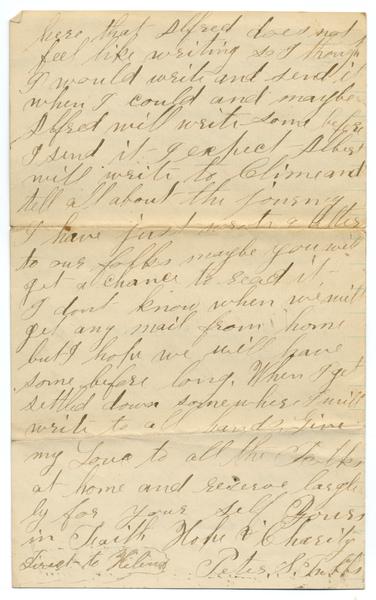 here that Alfred does not
feel like writing so I though
I would write and send it
when I could and maybe
Alfred will write some before
I send it - I expect Albert
will write to Clime and
tell all about the journey
I have just wrote a letter
to our folks maybe you will
get a chance to read it -
I dont know when we will
get any mail from home
but I hope we will have
some before long. When I get
settled down somewhere I will
write to all hands. Give
my Love to all the Folks
at home and reserve large
ly for your self Yours
in Faith Hope & Charity
Direct to Helena Peter S. Tubbs